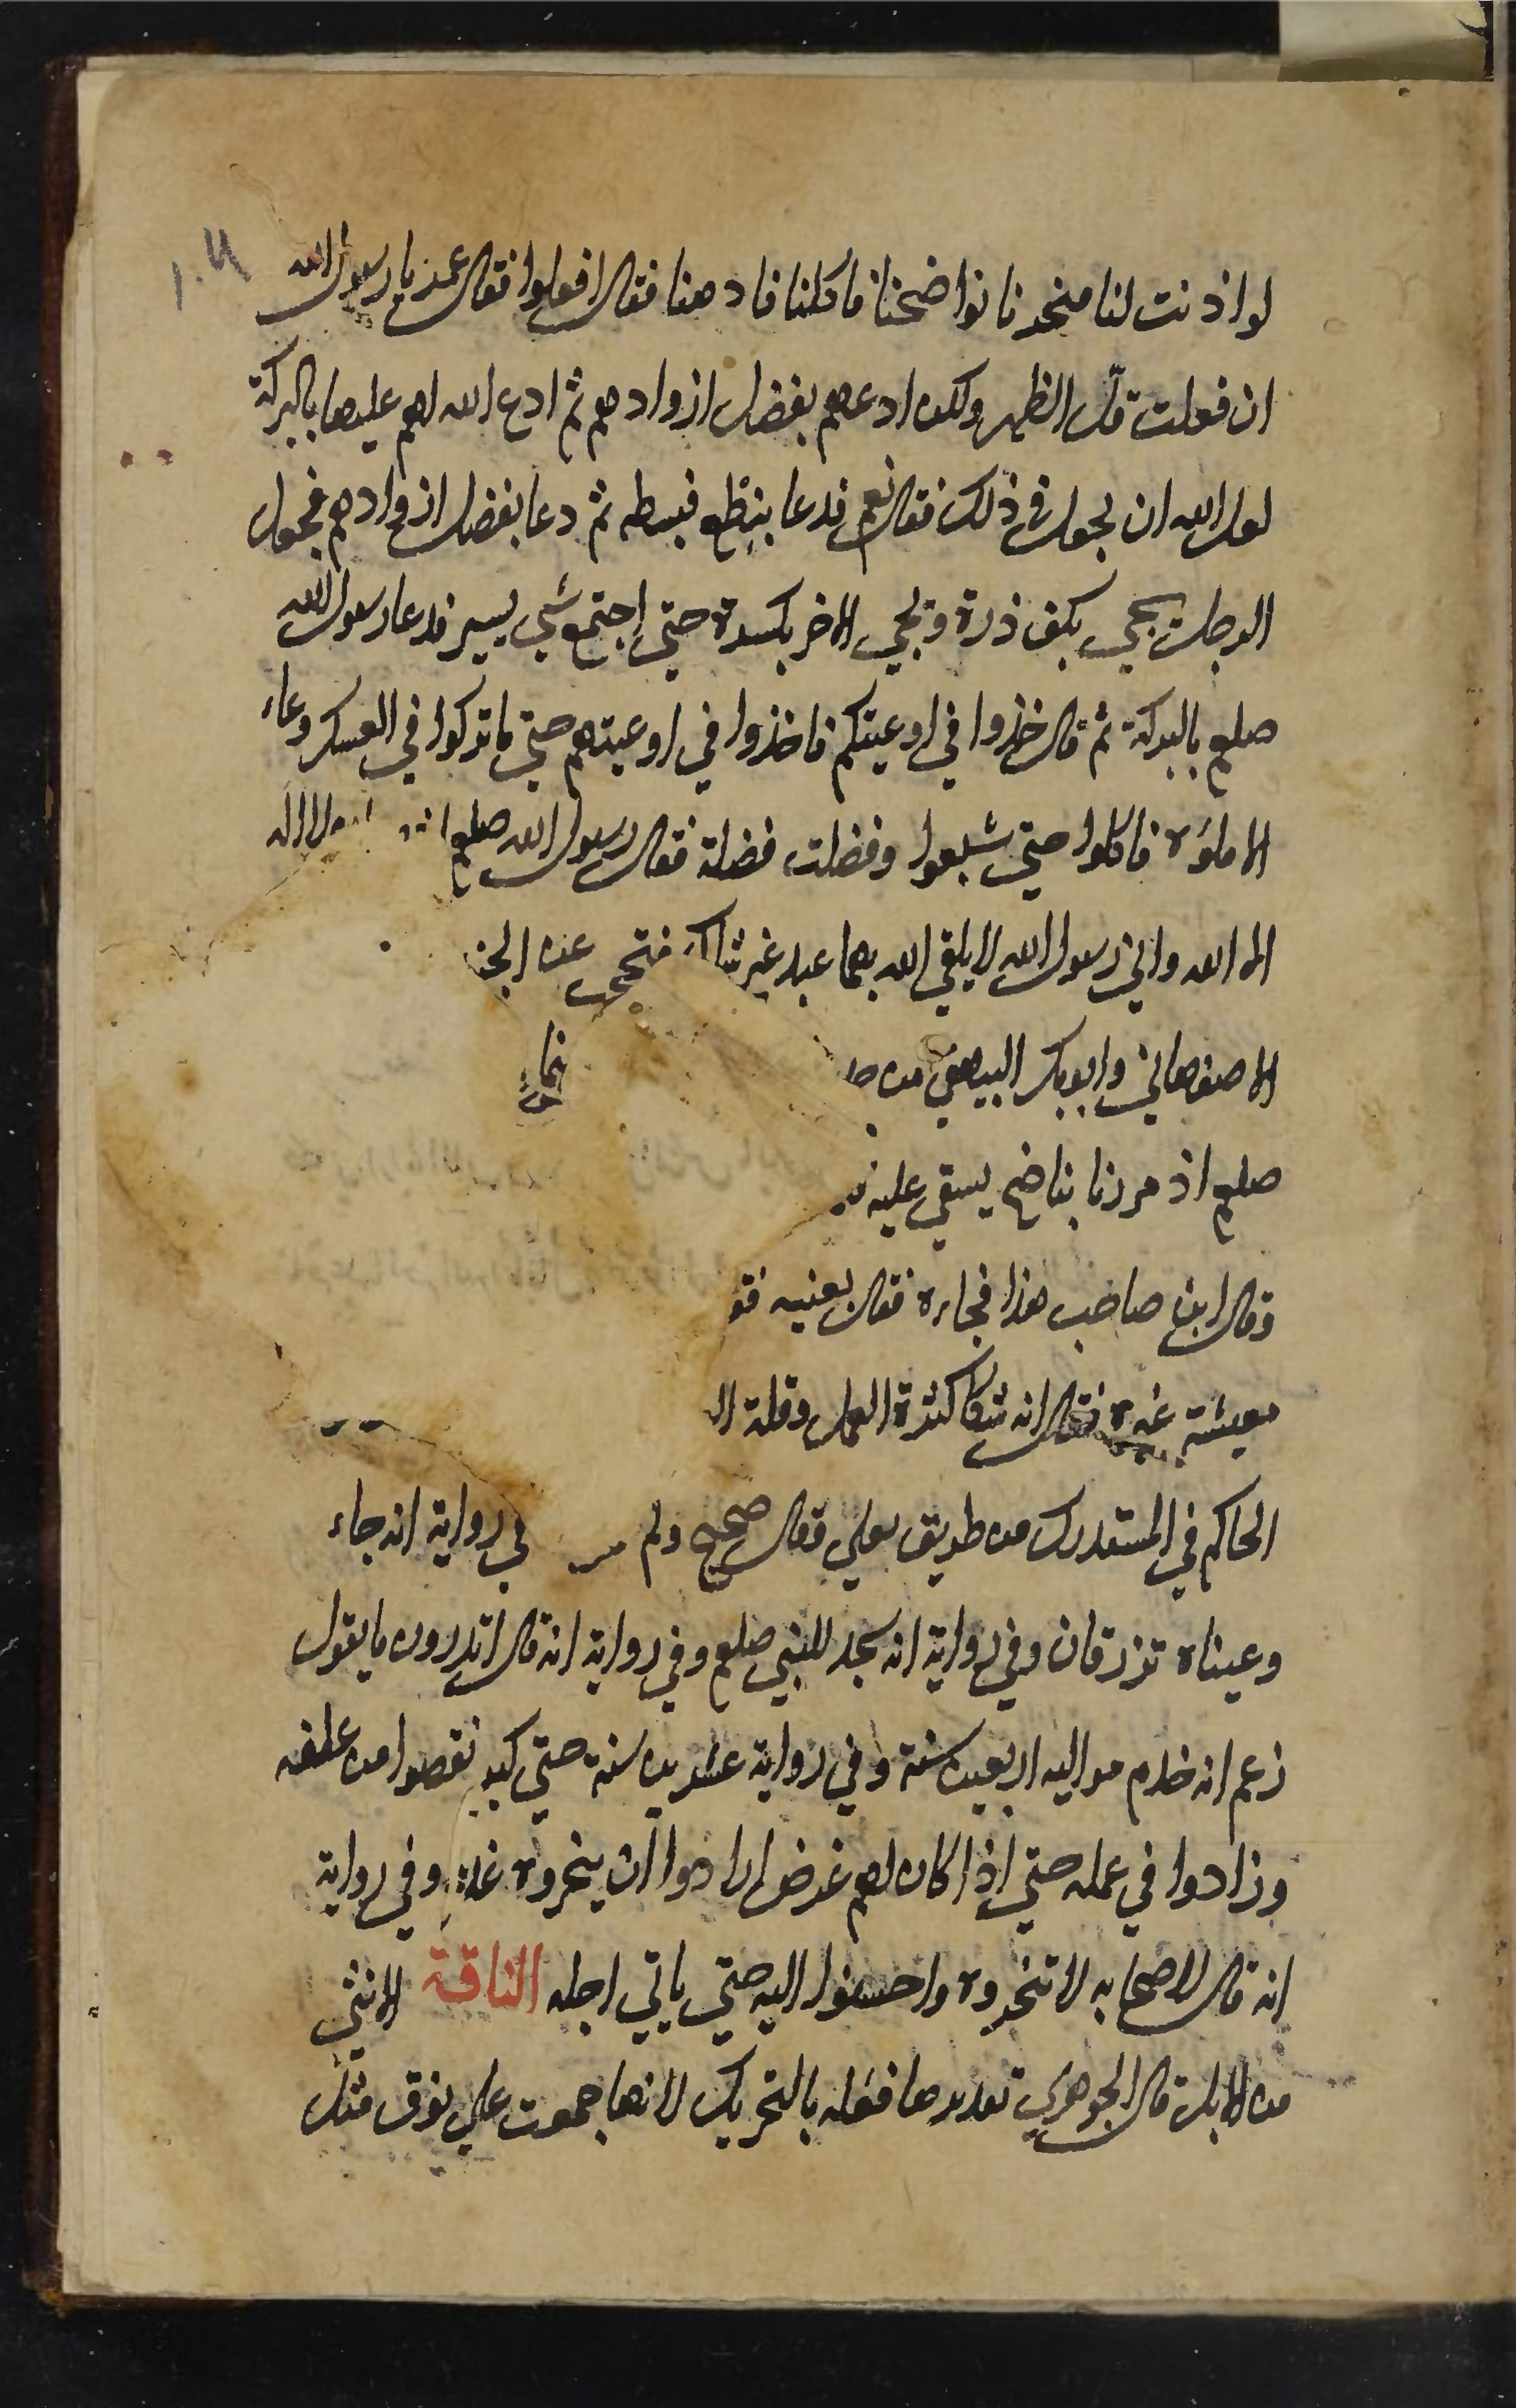 لو اذنت لنا فنحرنا نواضحنا فاكلنا فادهنا فقال افعلوا فقال عمر يا رسول الله
ان فعلت قلّ الظهر ولكن ادعهم بفضل ازوادهم ثم ادع الله لهم عليها بالبركة
لعل الله ان يجعل في ذلك فقال نعم فدعا بنطع فبسطه ثم دعا بفضل ازوادهم فجعل
الرجل يجي بكف ذرة ويجي الاخر بكسرة حتي اجتمع شي يسير فدعا رسول الله
صلعم بالبركة ثم قال خذوا في اوعيتكم فاخذوا في اوعيتهم حتي ما تركوا في العسكر وعاء
الا ملؤه فاكلوا حتي شبعوا وفضلت فضلة فقال رسول الله صلعم لا اله
الا الله واني رسول الله لا يلقي الله بهما عبد غير شاك فتحجب عنه
الاصفهاني وابو بكر البيهقي من
صلعم اذ مررنا بناضح يسقي عليه
وقال اين صاحب هذا فجاءه فقال بعنيه
معيشة غيره فقال انه شكا كثرة العمل وقلة
الحاكم في المستدرك من طريق يعلي وقال صحيح ولم في رواية انه جاء
وعيناه تذرفان وفي رواية انه سجد للنبي صلعم وفي رواية انه قال اتدرون ما يقول
زعم انه خدم مواليه اربعين سنة وفي رواية عشرين سنة حتي كبر نقصوا من علفه
وزادوا في عمله حتي اذا كان لهم غرض ارادوا ان ينحروه غدا وفي رواية
انه قال لاصحابه لا تنحروه واحسنوا اليه حتي ياتي اجله الناقة الانثي
من الابل قال الجوهري تقديرها فعله بالتحريك لانها جمعت علي نوق مثل